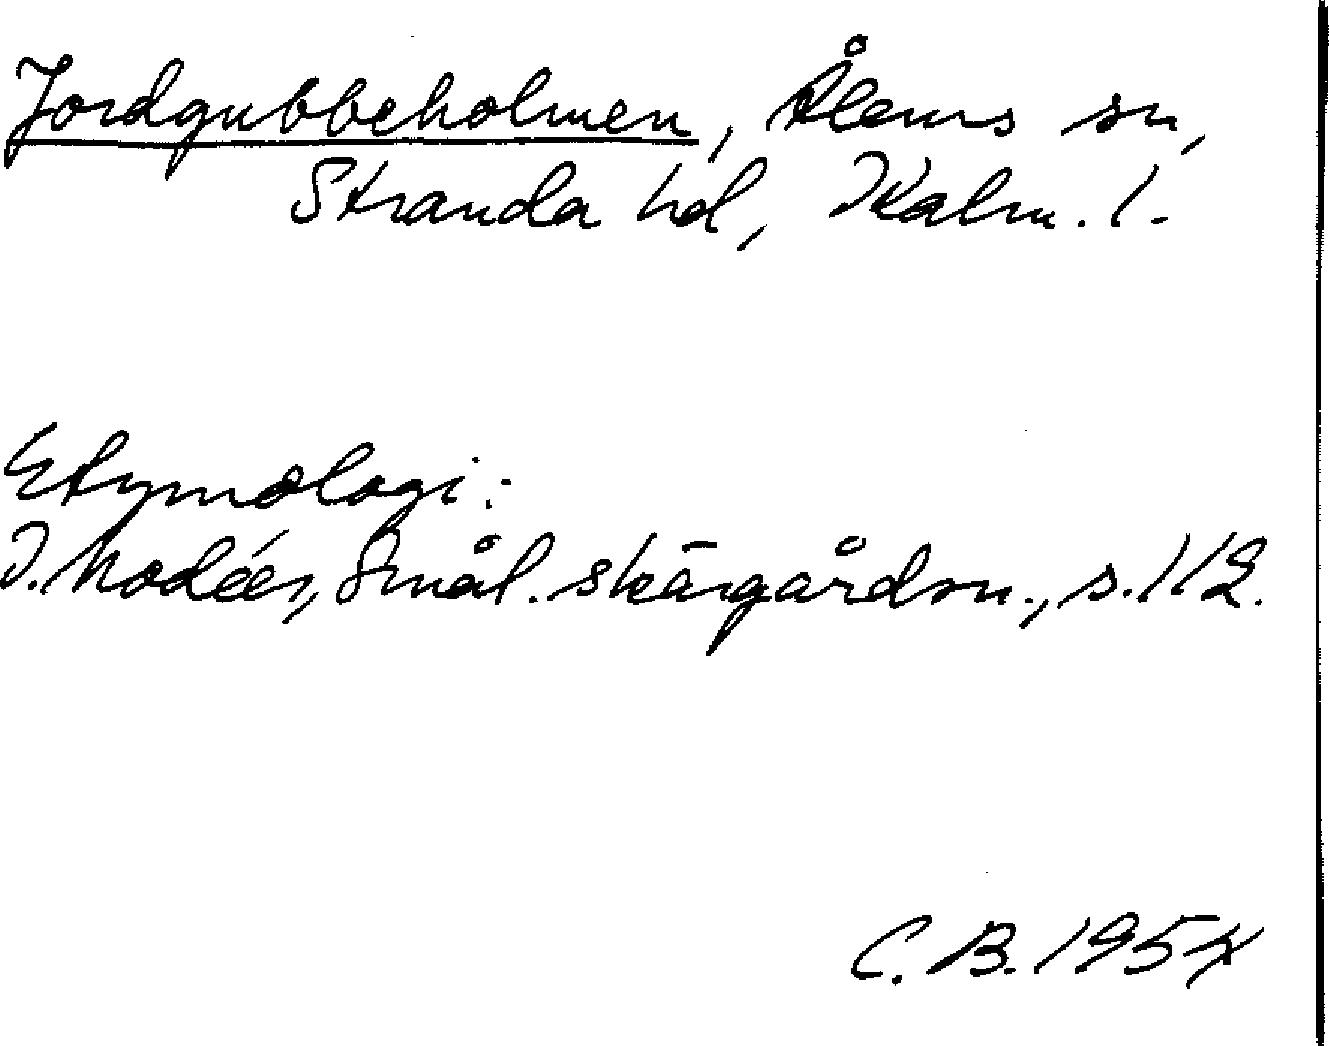 Jordgubbeholmen, Ålems sn,
Stranda hd, Kalm. l.
Etymologi:
I. Modéer, Smål. skärgårdsn., s. 112.
C. B. 1954